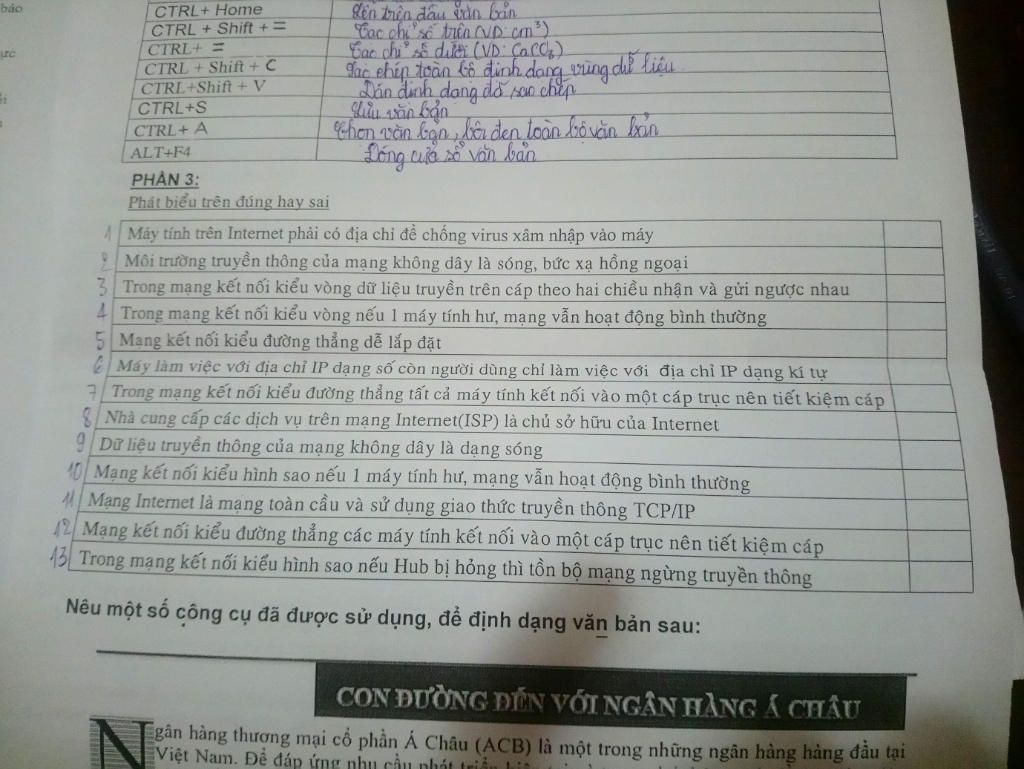 báo
CTRL+ Home Lên trên đầu văn bản
CTRL + Shift + = Các chỉ số trên (VD: cm³)
CTRL+ = Các chỉ số dưới (VD: CaCO₃)
CTRL + Shift + C Sao chép toàn bộ định dạng vùng dữ liệu
CTRL+Shift + V Dán định dạng đã sao chép
CTRL+S Lưu văn bản
CTRL+ A Chọn văn bản, bôi đen toàn bộ văn bản
ALT+F4 Đóng cửa sổ văn bản
PHẦN 3:
Phát biểu trên đúng hay sai
1 Máy tính trên Internet phải có địa chỉ để chống virus xâm nhập vào máy
2 Môi trường truyền thông của mạng không dây là sóng, bức xạ hồng ngoại
3 Trong mạng kết nối kiểu vòng dữ liệu truyền trên cáp theo hai chiều nhận và gửi ngược nhau
4 Trong mạng kết nối kiểu vòng nếu 1 máy tính hư, mạng vẫn hoạt động bình thường
5 Mạng kết nối kiểu đường thẳng dễ lắp đặt
6 Máy làm việc với địa chỉ IP dạng số còn người dùng chỉ làm việc với địa chỉ IP dạng kí tự
7 Trong mạng kết nối kiểu đường thẳng tất cả máy tính kết nối vào một cáp trục nên tiết kiệm cáp
8 Nhà cung cấp các dịch vụ trên mạng Internet(ISP) là chủ sở hữu của Internet
9 Dữ liệu truyền thông của mạng không dây là dạng sóng
10 Mạng kết nối kiểu hình sao nếu 1 máy tính hư, mạng vẫn hoạt động bình thường
11 Mạng Internet là mạng toàn cầu và sử dụng giao thức truyền thông TCP/IP
12 Mạng kết nối kiểu đường thẳng các máy tính kết nối vào một cáp trục nên tiết kiệm cáp
13 Trong mạng kết nối kiểu hình sao nếu Hub bị hỏng thì tồn bộ mạng ngừng truyền thông
Nêu một số công cụ đã được sử dụng, để định dạng văn bản sau:
CON ĐƯỜNG ĐẾN VỚI NGÂN HÀNG Á CHÂU
Ngân hàng thương mại cổ phần Á Châu (ACB) là một trong những ngân hàng hàng đầu tại
Việt Nam. Để đáp ứng nhu cầu phát triển